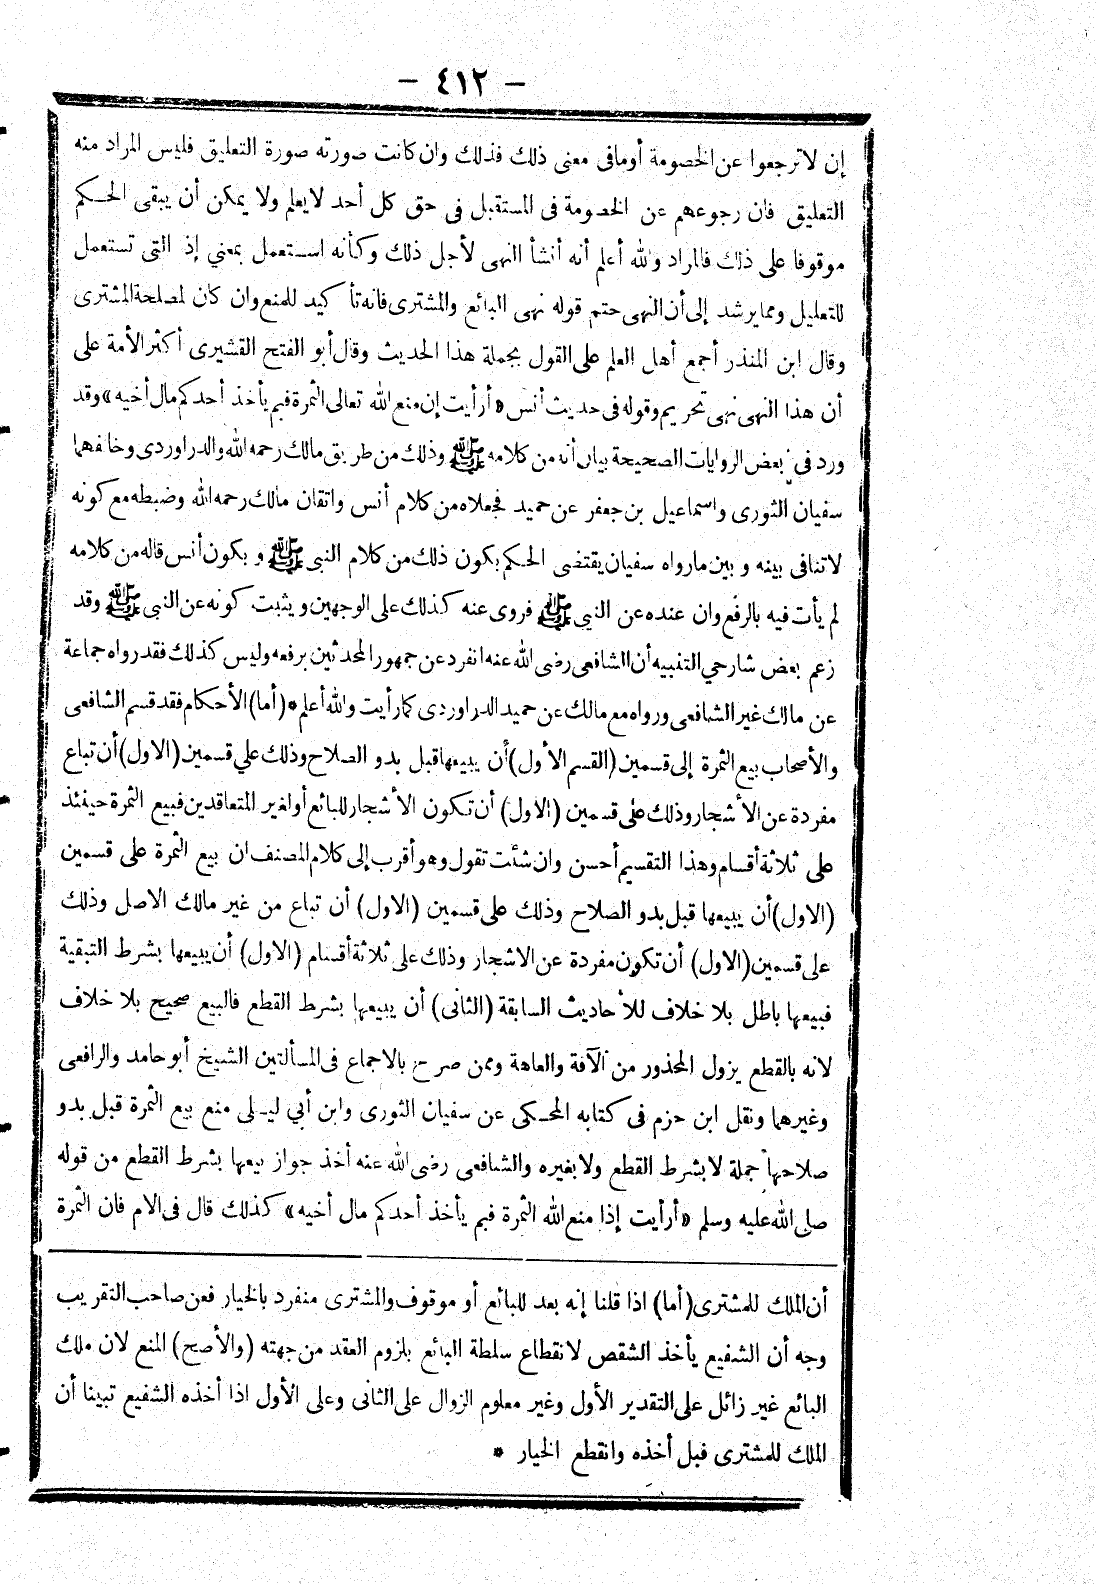 - ٤١٢ -
إن لا ترجعوا عن الخصومة أوما فى معنى ذلك فذلك وان كانت صورته صورة التعليق فليس المراد منه
التعليق فان رجوعهم عن الخصومة فى المستقبل فى حق كل أحد لا يعلم ولا يمكن أن يبقى الحكم
موقوفا على ذلك فالمراد والله أعلم أنه أنشأ النهى لأجل ذلك وكأنه استعمل بمعني إذ التى تستعمل
للتعليل ومما يرشد إلى أن النهى حتم قوله نهى البائع والمشترى فانه تأ كيد للمنع وان كان لمصلحة المشترى
وقال ابن المنذر أجمع أهل العلم على القول بجملة هذا الحديث وقال أبو الفتح القشيرى أكثر الأمة على
أن هذا النهى نهى تحريم وقوله فى حديث أنس «أرأيت إن منع الله تعالى الثمرة فبم يأخذ أحدكم مال أخيه» وقد
ورد في بعض الروايات الصحيحة بيان أنه من كلامه ﷺ وذلك من طريق مالك رحمه الله والدراوردى وخالفهما
سفيان الثورى واسماعيل بن جعفر عن حميد فجعلاه من كلام أنس واتقان مالك رحمه الله وضبطه مع كونه
لا تنافى بينه و بين مارواه سفيان يقتضى الحكم بكون ذلك من كلام النبى ﷺ و بكون أنس قاله من كلامه
لم يأت فيه بالرفع وان عنده عن النبي ﷺ فروى عنه كذلك على الوجهين و يثبت كونه عن النبى ﷺ وقد
زعم بعض شارحي التنبيه أن الشافعى رضى الله عنه انفرد عن جمهور المحدثين برفعه وليس كذلك فقد رواه جماعة
عن مالك غير الشافعى ورواه مع مالك عن حميد الدراوردى كما رأيت والله أعلم * (أما) الأحكام فقد قسم الشافعى
والأصحاب بيع الثمرة إلى قسمين (القسم الأول) أن يبيعها قبل بدو الصلاح وذلك علي قسمين (الاول) أن تباع
مفردة عن الأشجار وذلك على قسمين (الاول) أن تكون الأشجار للبائع أو لغير المتعاقدين فبيع الثمرة حينئذ
على ثلاثة أقسام وهذا التقسيم أحسن وان شئت تقول وهو أقرب إلى كلام المصنف ان بيع الثمرة على قسمين
(الاول) أن يبيعها قبل بدو الصلاح وذلك على قسمين (الاول) أن تباع من غير مالك الاصل وذلك
على قسمين (الاول) أن تكون مفردة عن الاشجار وذلك على ثلاثة أقسام (الاول) أن يبيعها بشرط التبقية
فبيعها باطل بلا خلاف للأحاديث السابقة (الثانى) أن يبيعها بشرط القطع فالبيع صحيح بلا خلاف
لانه بالقطع يزول المحذور من الآفة والعاهة وممن صرح بالاجماع فى المسألتين الشيخ أبو حامد والرافعى
وغيرهما ونقل ابن حزم فى كتابه المحكى عن سفيان الثورى وابن أبي ليلى منع بيع الثمرة قبل بدو
صلاحها جملة لا بشرط القطع ولا بغيره والشافعى رضى الله عنه أخذ جواز بيعها بشرط القطع من قوله
صلى الله عليه وسلم «أرأيت إذا منع الله الثمرة فبم يأخذ أحدكم مال أخيه» كذلك قال فى الام فان الثمرة
أن الملك للمشترى (أما) اذا قلنا إنه بعد للبائع أو موقوف والمشترى منفرد بالخيار فعن صاحب التقريب
وجه أن الشفيع يأخذ الشقص لانقطاع سلطة البائع بلزوم العقد من جهته (والأصح) المنع لان ملك
البائع غير زائل على التقدير الأول وغير معلوم الزوال على الثانى وعلى الأول اذا أخذه الشفيع تبينا أن
الملك للمشترى قبل أخذه وانقطع الخيار *